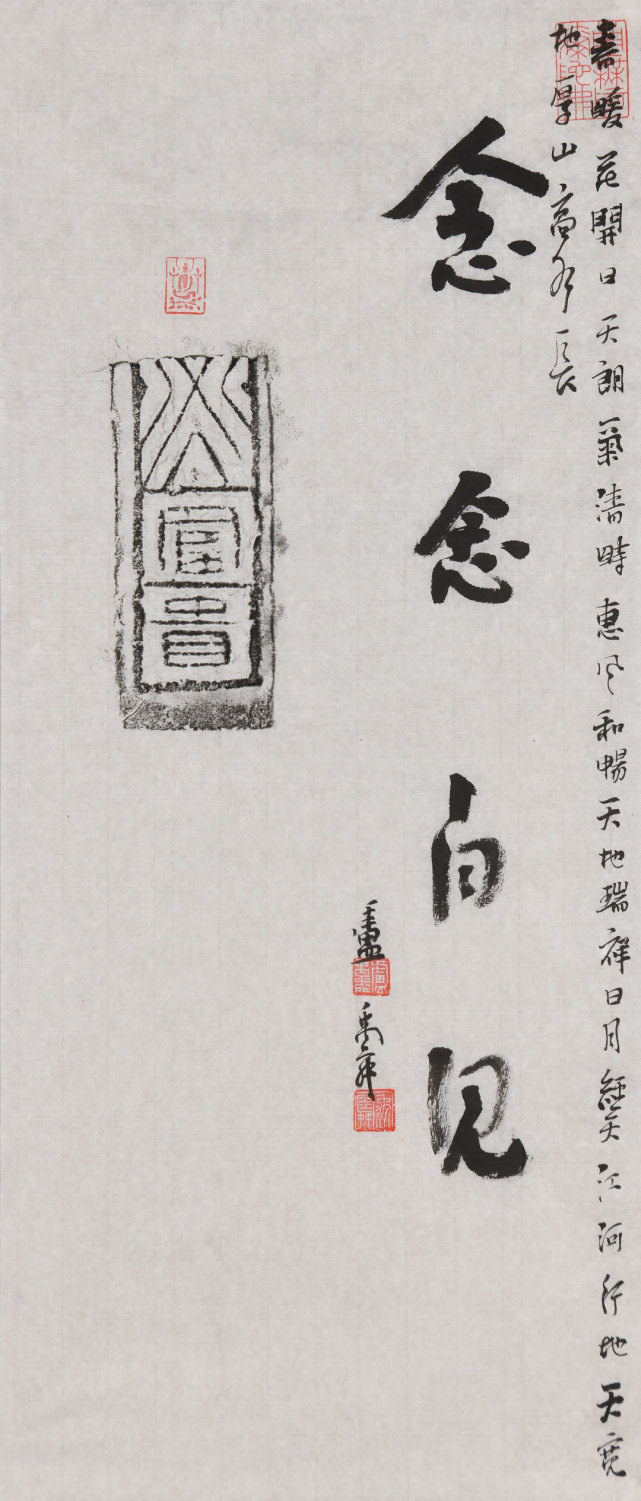 春暖花開日天朗氣清時惠風和暢天地瑞祥日月經天江河行地天寬
地厚山高水長
念念自見
盧禹舜
大富貴